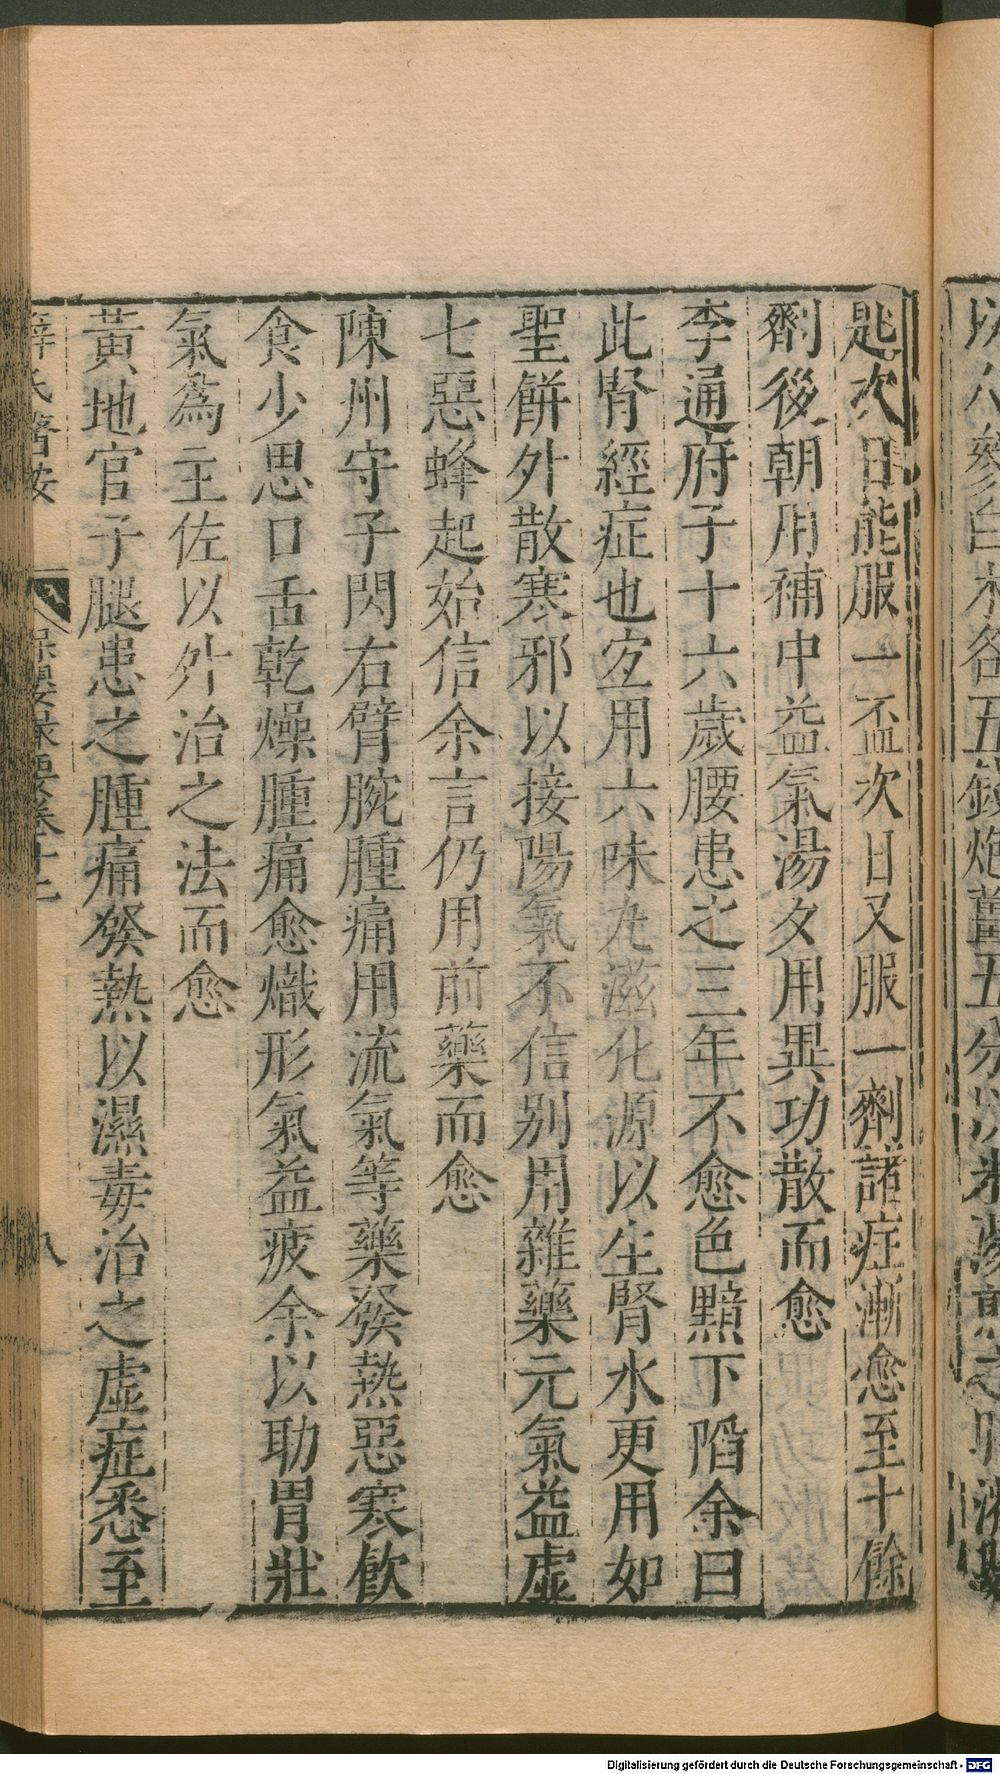 匙次日能服一盃次日又服一劑諸症漸愈至十餘
劑後朝用補中益氣湯夕用異功散而愈
李通府子十六歲腰患之三年不愈色黯下陷余曰
此腎經症也宜用六味丸滋化源以生腎水更用如
聖餅外散寒邪以接陽氣不信别用雜藥元氣益虛
七惡蜂起始信余言仍用前藥而愈
陳州守子閃右臂腕腫痛用流氣等藥發熱惡寒飲
食少思口舌乾燥腫痛愈熾形氣益疲余以助胃壯
氣爲主佐以外治之法而愈
黃地官子腿患之腫痛發熱以濕毒治之虛症悉至
薛氏醫按 保嬰撮要卷十 八
Digitalisierung gefördert durch die Deutsche Forschungsgemeinschaft - DFG